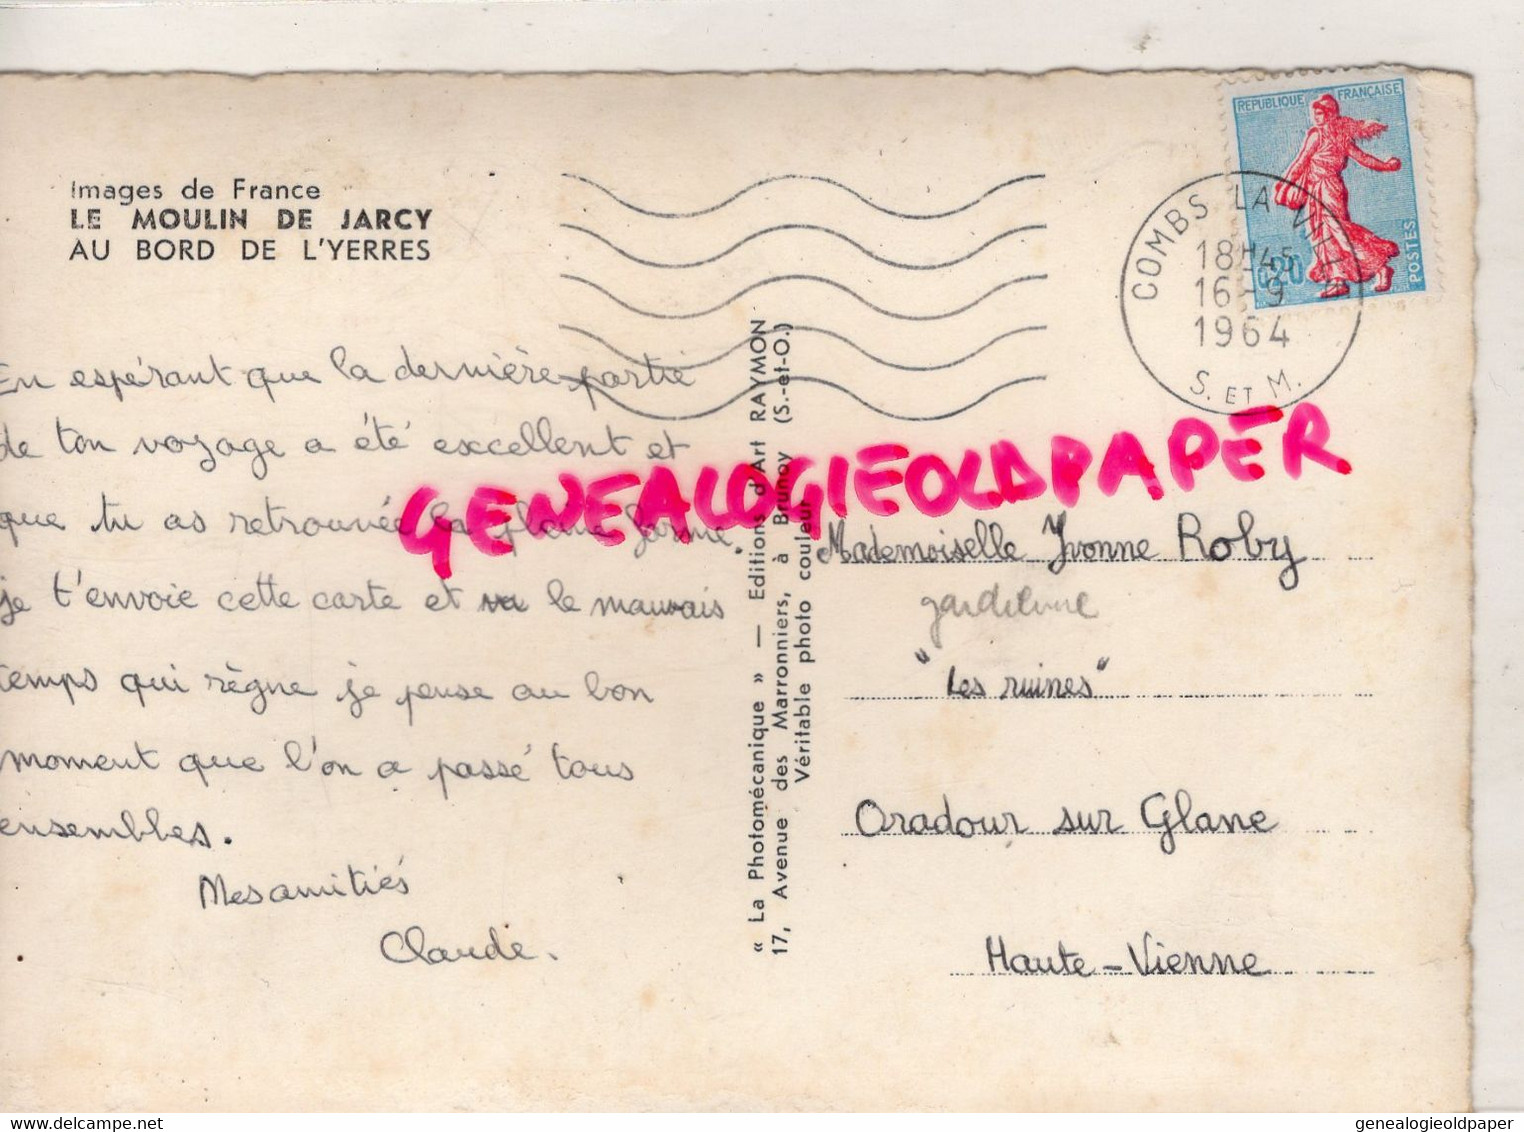 Images de France
LE MOULIN DE JARCY
AU BORD DE L'YERRES
En espérant que la dernière partie
de ton voyage a été excellent et
que tu as retrouvée la pleine forme.
je t'envoie cette carte et le mauvais
temps qui règne je pense au bon
moment que l'on a passé tous
ensembles.
Mes amitiés
Claude.
« La Photomécanique » — Editions d'Art RAYMON
17, Avenue des Marronniers, à Brunoy (S.-et-O.)
Véritable photo couleur
REPUBLIQUE FRANÇAISE
0,20
POSTES
COMBS LA VILLE
18H45
16-9
1964
S. ET M.
GENEALOGIEOLDPAPER
Mademoiselle Yvonne Roby
"Les ruines"
Oradour sur Glane
Haute-Vienne
genealogieoldpaper